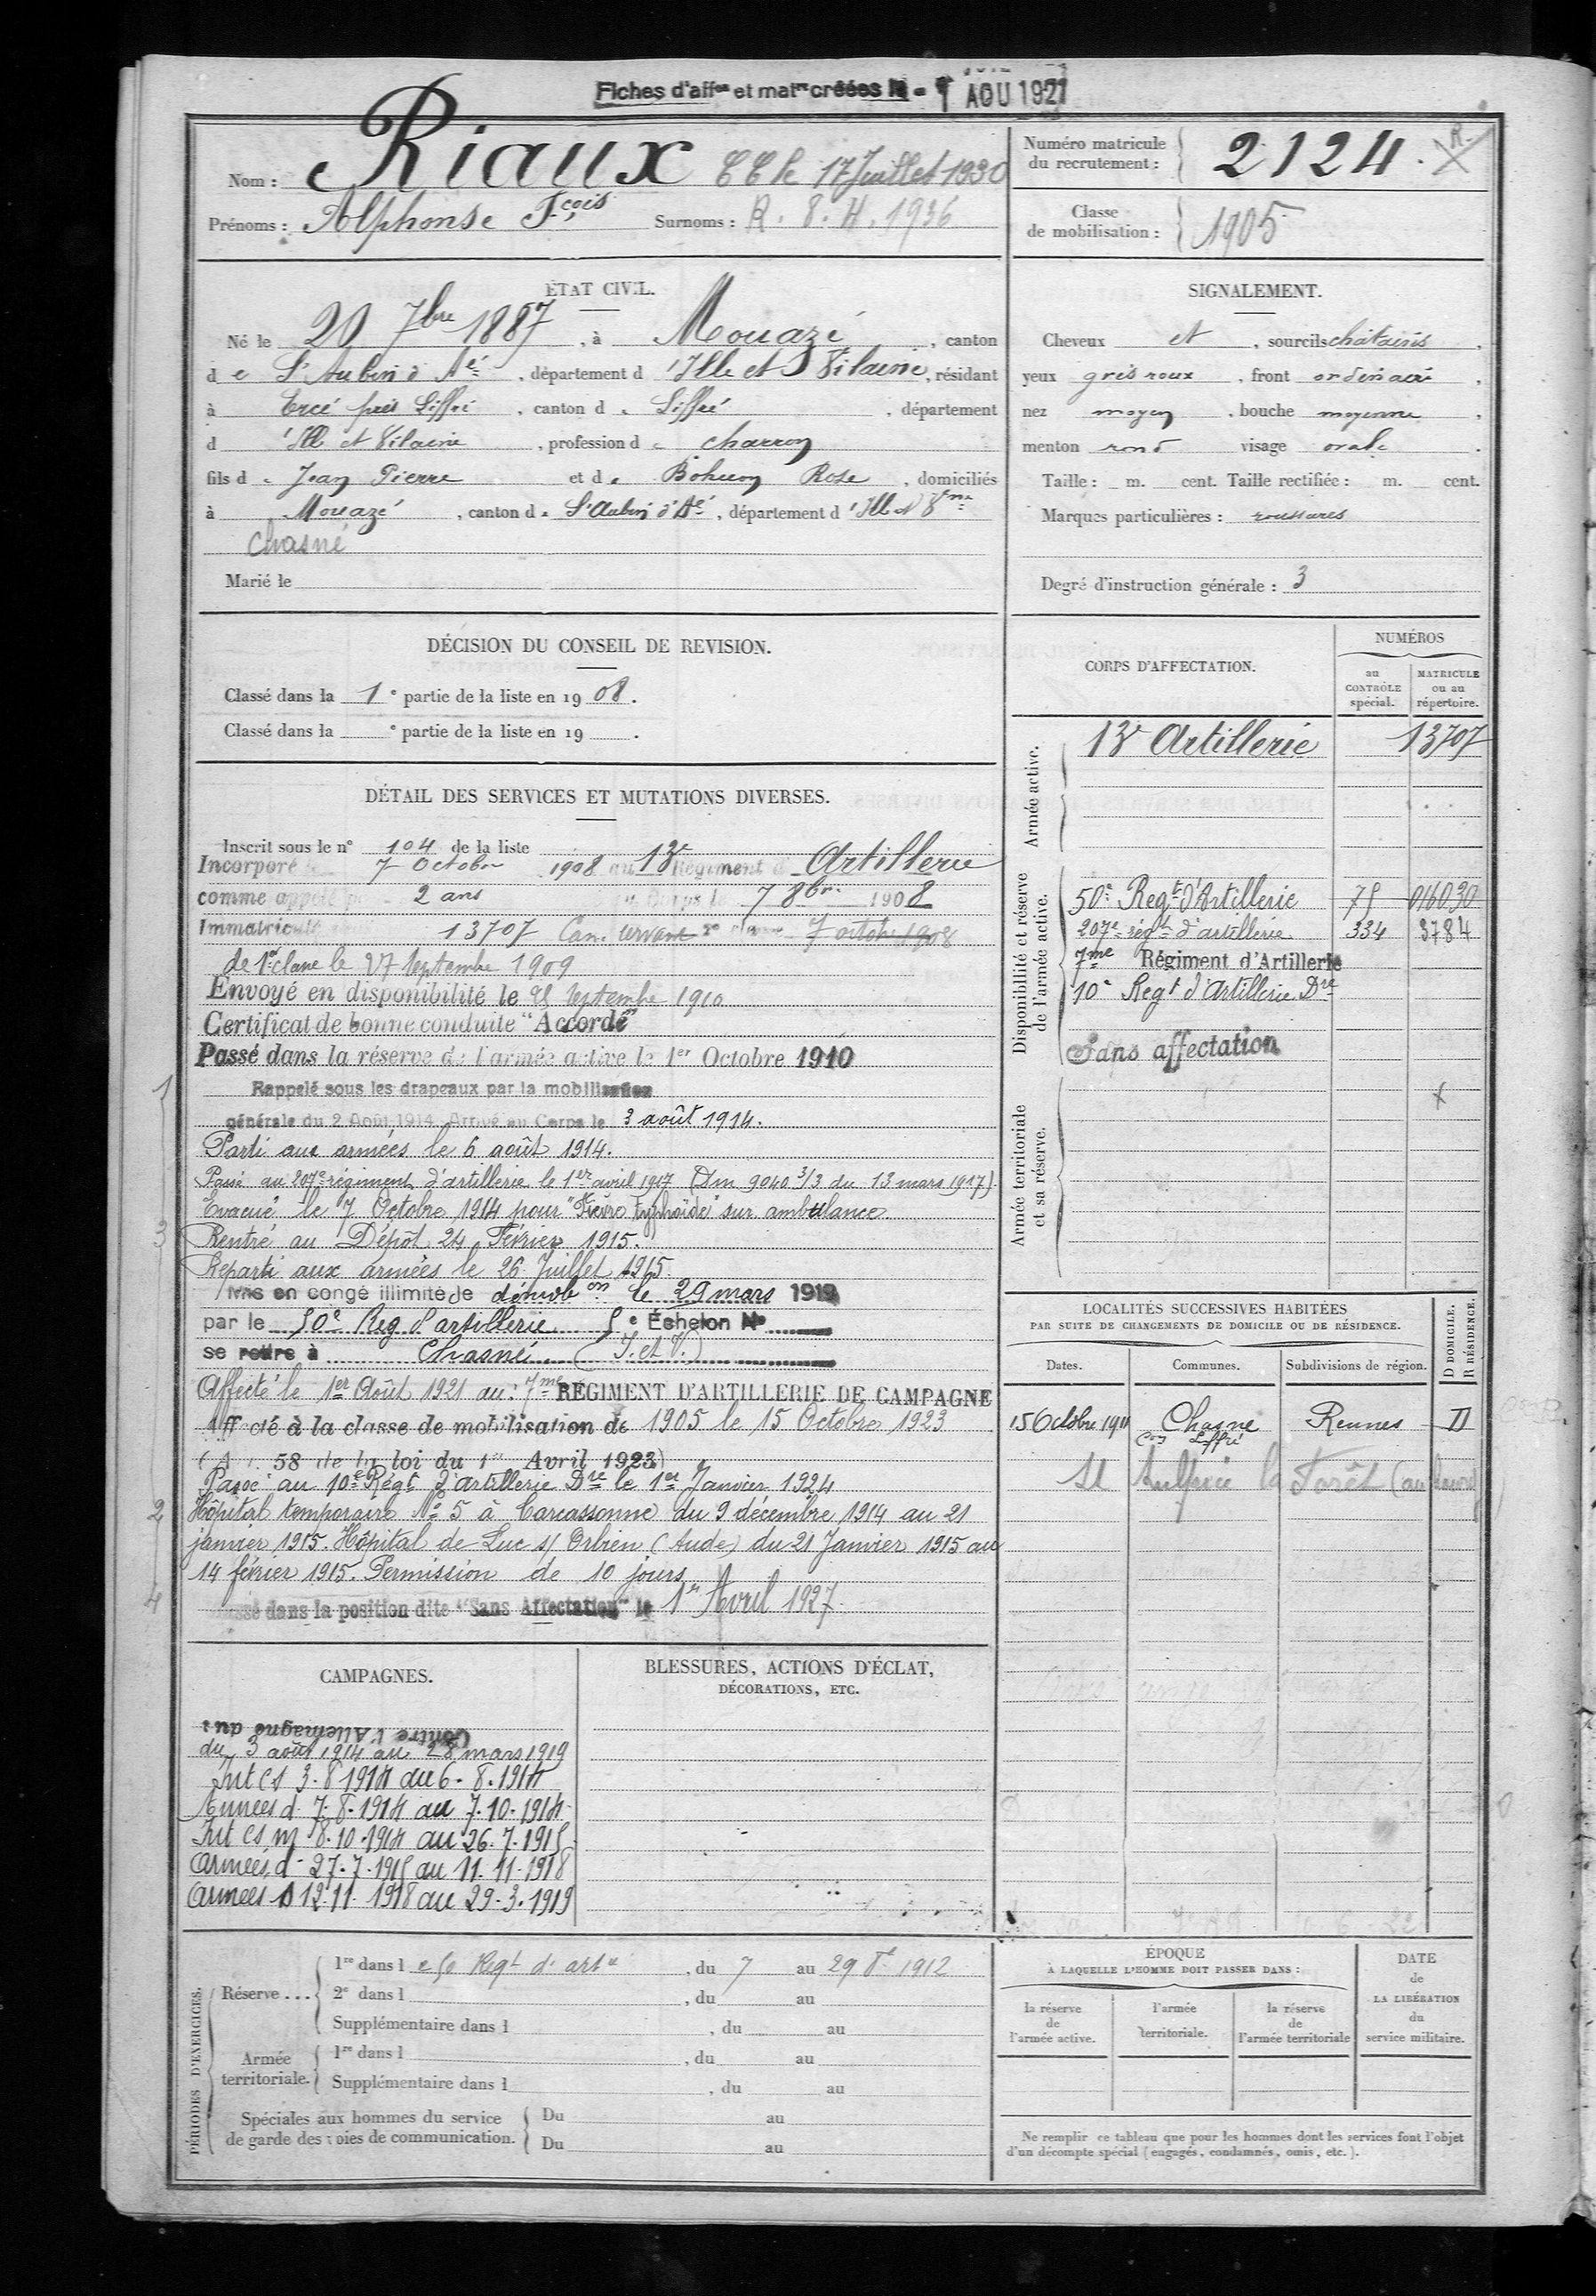 Fiches d'aff^on et mat^re créées le - 1 AOU 1921
Nom : Riaux CC le 17 Juillet 1930
Prénoms : Alphonse F^çois Surnoms : R. 8. H. 1936
Numéro matricule du recrutement : 2124. R.
Classe de mobilisation : 1905
ÉTAT CIVIL.
Né le 20 7^bre 1887, à Mouazé, canton
de S^t Aubin d'A^é, département d'Ille et Vilaine, résidant
à Ercé près Liffré, canton de Liffré, département
d'Ille et Vilaine, profession de charron
fils de Jean Pierre et de Bohuon Rose, domiciliés
à Mouazé, canton de S^t Aubin d'A^é, département d'Ille et V^ne
Chasné
Marié le
SIGNALEMENT.
Cheveux et, sourcils châtains,
yeux gris roux, front ordinaire,
nez moyen, bouche moyenne,
menton rond visage ovale.
Taille : m. cent. Taille rectifiée : m. cent.
Marques particulières : roussures
Degré d'instruction générale : 3
DÉCISION DU CONSEIL DE REVISION.
Classé dans la 1^e partie de la liste en 1908.
Classé dans la ^e partie de la liste en 19 .
DÉTAIL DES SERVICES ET MUTATIONS DIVERSES.
Inscrit sous le n° 104 de la liste
Incorporé le 7 Octobre 1908 au 13^e Régiment d'Artillerie
comme appelé 2 ans au Corps le 7 8^bre 1908
Immatriculé 13707 Can. servant 2^e classe 7 octob. 1908
de 1^re classe le 27 Septembre 1909
Envoyé en disponibilité le 25 Septembre 1910
Certificat de bonne conduite "Accordé"
Passé dans la réserve de l'armée active le 1^er Octobre 1910
1 Rappelé sous les drapeaux par la mobilisation
générale du 2 Août 1914. Arrivé au Corps le 3 août 1914.
Parti aux armées le 6 août 1914.
Passé au 207^e régiment d'artillerie le 1^er avril 1917 (Dm 9040 3/3 du 13 mars 1917).
Evacué le 7 Octobre 1914 pour "Fièvre typhoïde" sur ambulance.
3 Rentré au Dépôt 24 Février 1915.
Reparti aux armées le 26 Juillet 1915.
Mis en congé illimité de démob^on le 29 mars 1919
par le 50^e Reg d'artillerie 5^e Échelon N°
se retire à Chasné (I. et V.)
Affecté le 1^er Août 1921 au : 7^me RÉGIMENT D'ARTILLERIE DE CAMPAGNE
Affecté à la classe de mobilisation de 1905 le 15 Octobre 1923
(Art. 58 de la loi du 1^er Avril 1923)
Passé au 10^e Régt d'artillerie D^re le 1^er Janvier 1924
2 Hôpital temporaire N° 5 à Carcassonne du 9 décembre 1914 au 21
janvier 1915. Hôpital de Luc s/ Orbieu (Aude) du 21 Janvier 1915 au
14 février 1915. Permission de 10 jours
4 Classé dans la position dite "Sans Affectation" le 1^er Avril 1927
CORPS D'AFFECTATION.
NUMÉROS
au CONTRÔLE spécial.
MATRICULE ou au répertoire.
Armée active.
13^e Artillerie 13707
Disponibilité et réserve de l'armée active.
50^e Reg^t d'Artillerie 75 016030
207^e rég^t d'artillerie 334 3784
7^me Régiment d'Artillerie
10^e Reg^t d'Artillerie D^re
Sans affectation
Armée territoriale et sa réserve.
LOCALITÉS SUCCESSIVES HABITÉES
PAR SUITE DE CHANGEMENTS DE DOMICILE OU DE RÉSIDENCE.
Dates. Communes. Subdivisions de région. D DOMICILE. R RÉSIDENCE.
15 Octobre 1911 Chasné Rennes D
C^on Liffré
St Sulpice la Forêt
CAMPAGNES.
Contre l'Allemagne du :
du 3 août 1914 au 28 mars 1919
Int Cs 3.8 1914 au 6.8.1914
Armées d 7.8.1914 au 7.10.1914
Int Cs m 8.10.1914 au 26.7.1915
Armées d 27.7.1915 au 11.11.1918
Armées S 12.11.1918 au 29.3.1919
BLESSURES, ACTIONS D'ÉCLAT,
DÉCORATIONS, ETC.
PÉRIODES D'EXERCICES.
Réserve . . .
1^re dans le 50 Reg^t d'art^ie, du 7 au 29 1912
2^e dans l , du au
Supplémentaire dans l , du au
Armée territoriale.
1^re dans l , du au
Supplémentaire dans l , du au
Spéciales aux hommes du service de garde des voies de communication.
Du au
Du au
ÉPOQUE
À LAQUELLE L'HOMME DOIT PASSER DANS :
la réserve de l'armée active.
l'armée territoriale.
la réserve de l'armée territoriale
DATE de LA LIBÉRATION du service militaire.
Ne remplir ce tableau que pour les hommes dont les services font l'objet
d'un décompte spécial (engagés, condamnés, omis, etc.).